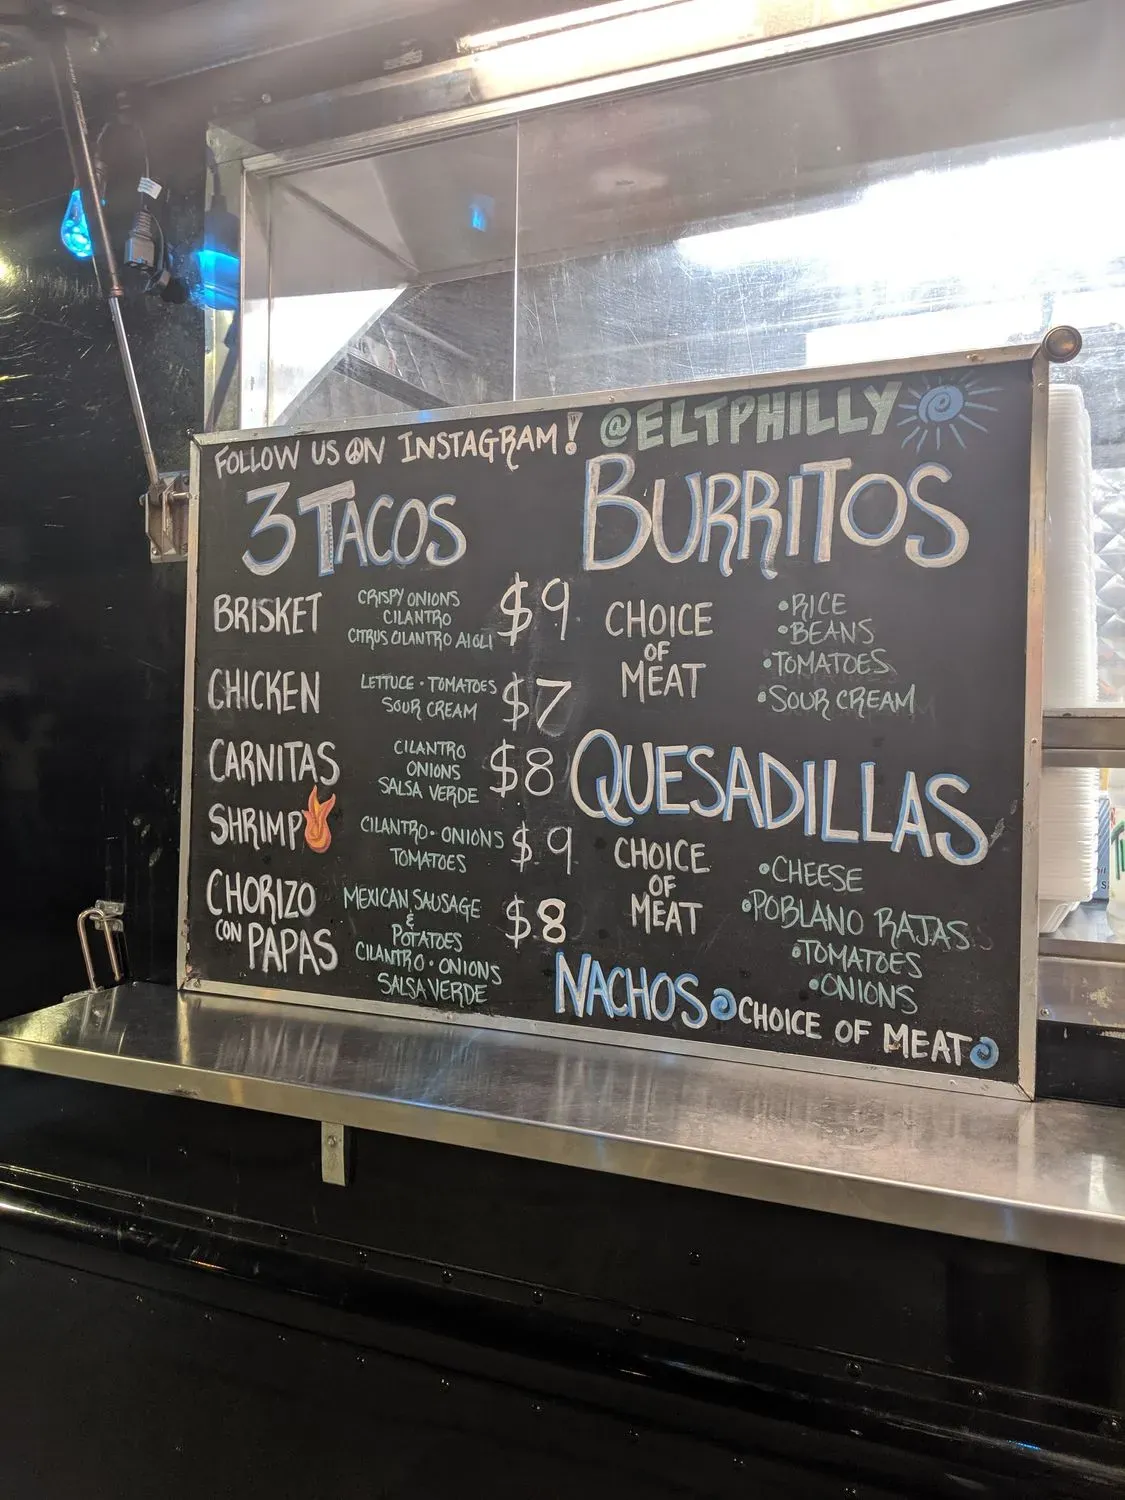 FOLLOW US ON INSTAGRAM! @ELTPHILLY
3 TACOS
BRISKET
CRISPY ONIONS
CILANTRO
CITRUS CILANTRO AIOLI
$9
CHICKEN
LETTUCE • TOMATOES
SOUR CREAM
$7
CARNITAS
CILANTRO
ONIONS
SALSA VERDE
$8
SHRIMP
CILANTRO • ONIONS
TOMATOES
$9
CHORIZO
CON PAPAS
MEXICAN SAUSAGE
&
POTATOES
CILANTRO • ONIONS
SALSA VERDE
$8
BURRITOS
CHOICE
OF
MEAT
• RICE
• BEANS
• TOMATOES
• SOUR CREAM
QUESADILLAS
CHOICE
OF
MEAT
• CHEESE
• POBLANO RAJAS
• TOMATOES
• ONIONS
NACHOS CHOICE OF MEAT